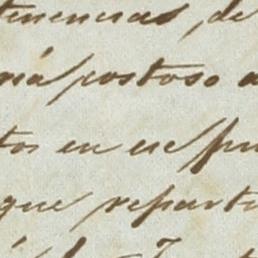 tenencias, de
má costoso a
tos en ese pu
que reparti